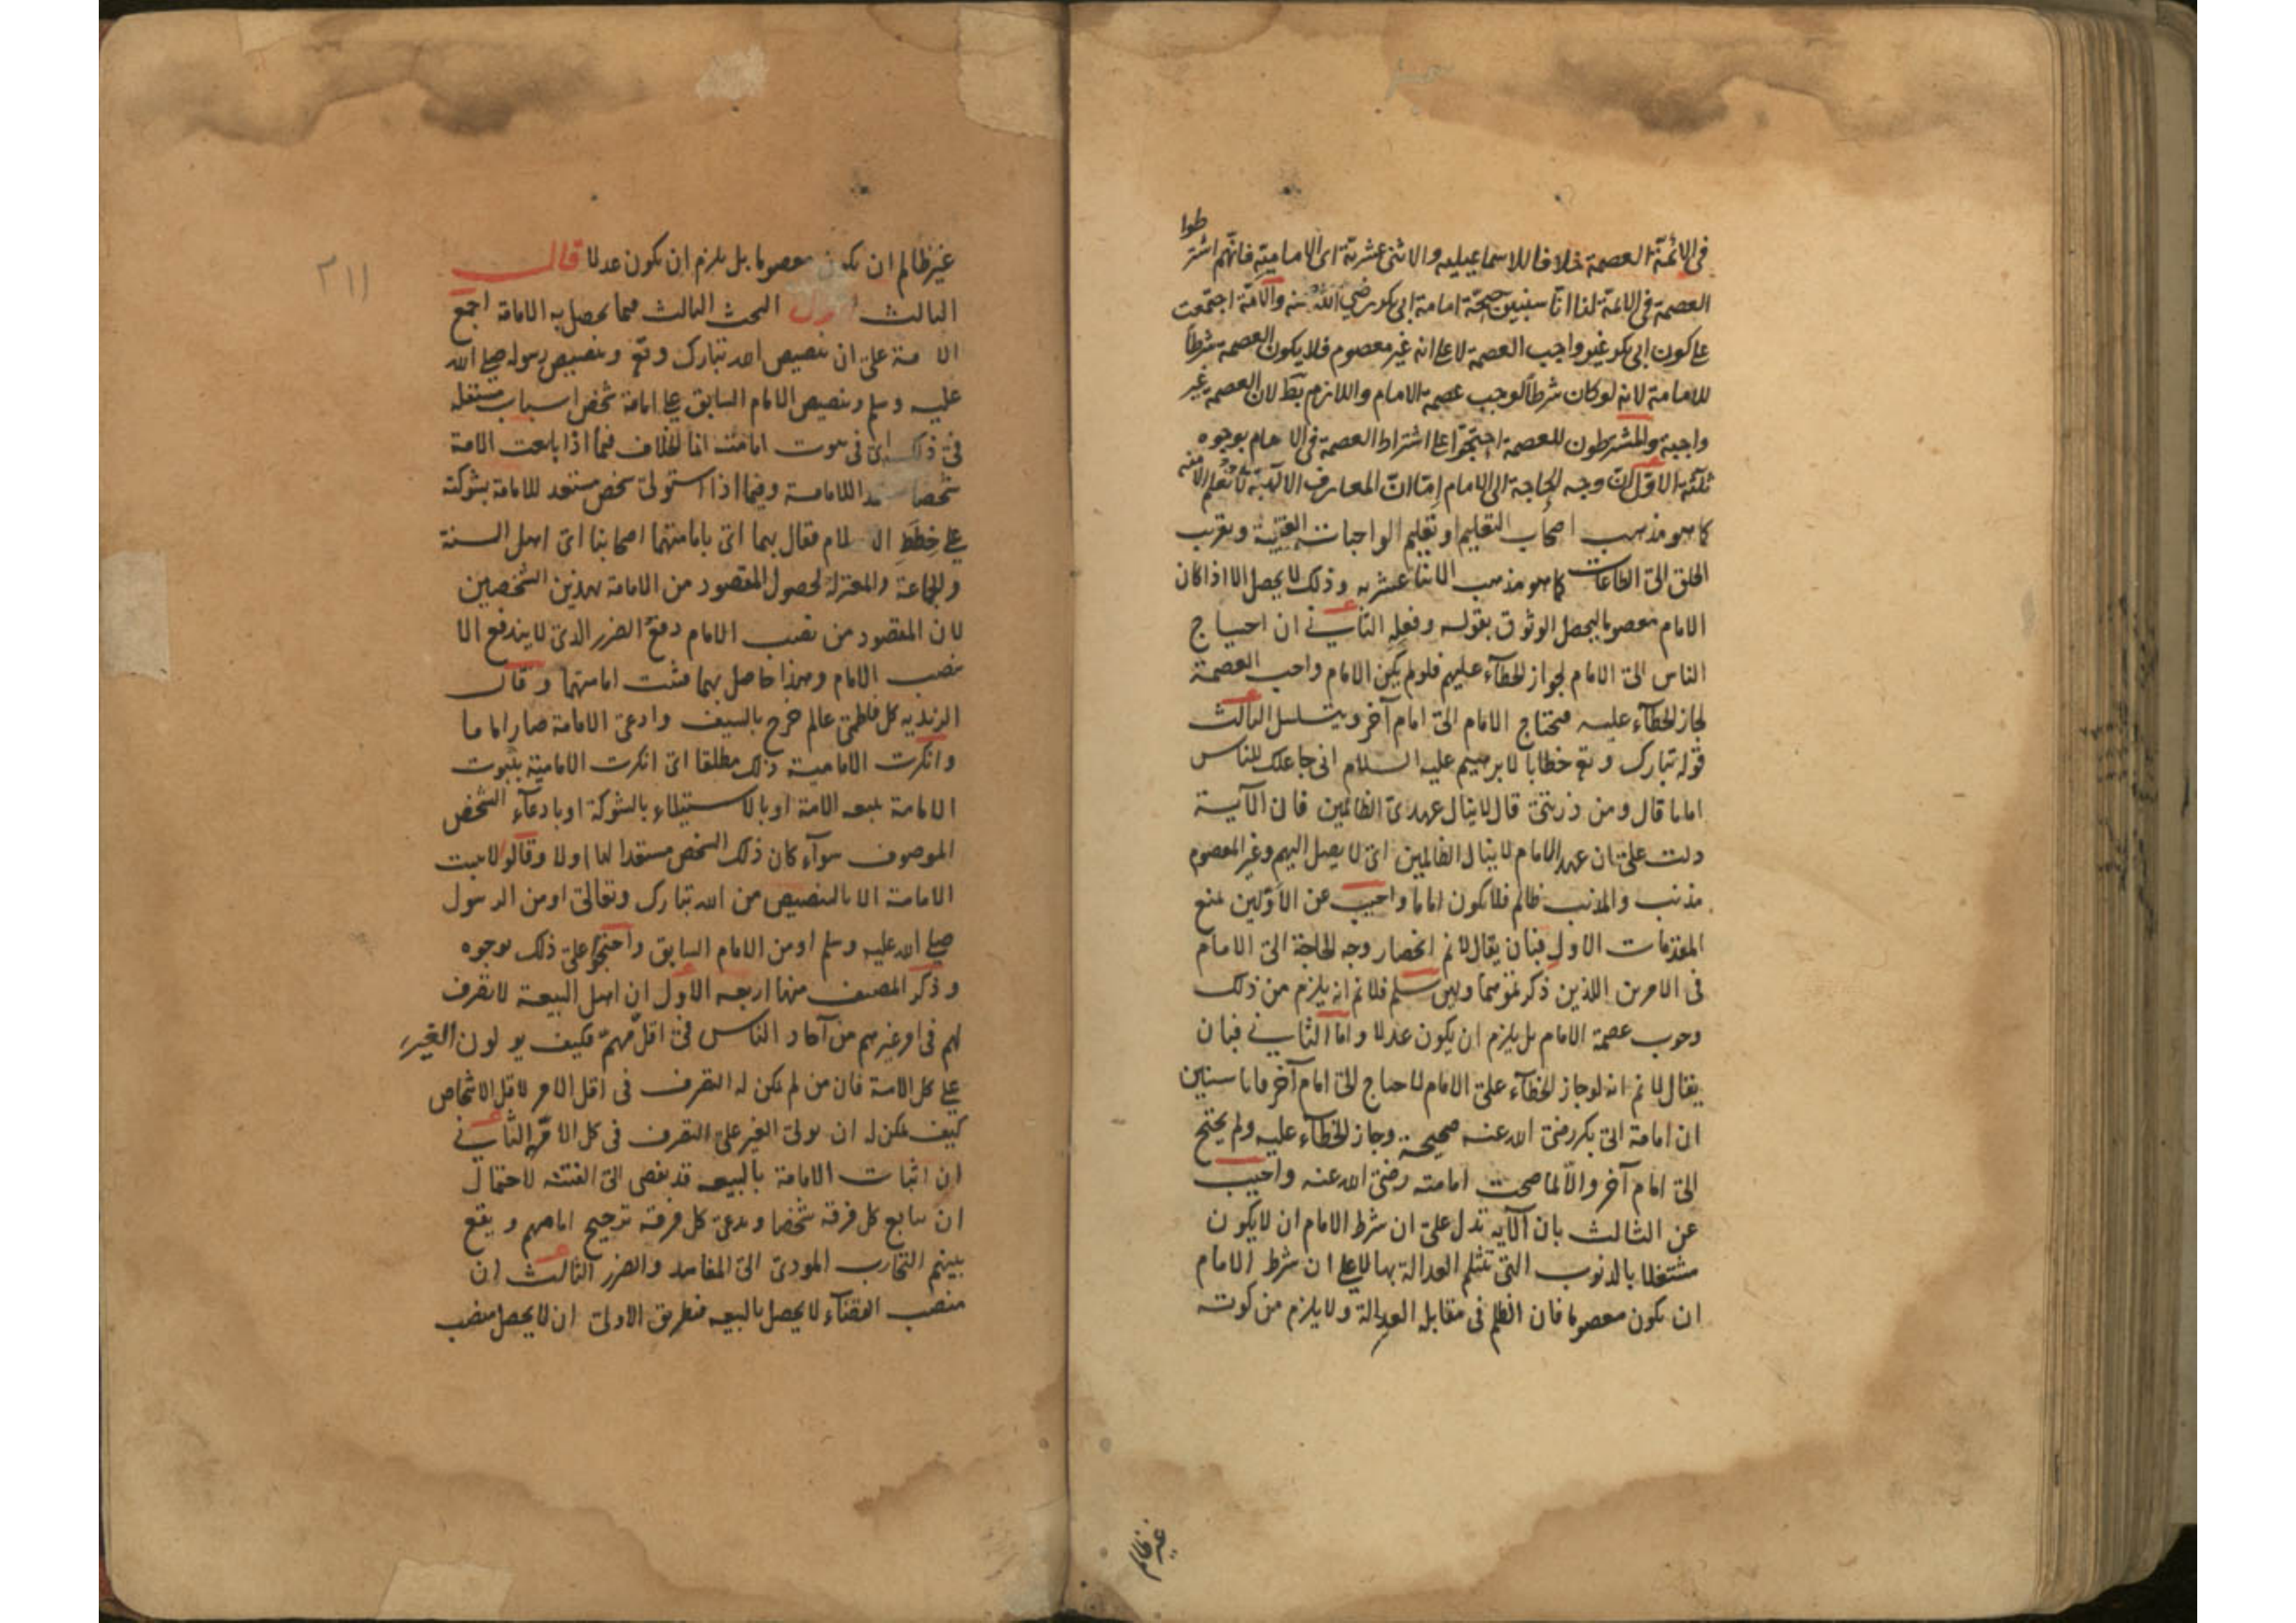 طوا
فى الائمة العصمة خلافا للاسماعيليه والاثنى عشرية اى الامامية فانهم اشتر
العصمة فى الائمة لنا انا سنبين صحة امامة ابى بكر رضي الله عنه والامة اجتمعت
على كون ابى بكر غير واجب العصمة لا على انه غير معصوم فلا يكون العصمة شرطا
للامامة لانه لو كان شرطا لوجب عصمة الامام واللازم بط لان العصمة غير
واجبة والمشترطون للعصمة احتجوا على اشتراط العصمة فى الامام بوجوه
ثلثة الاول ان وجه الحاجة الى الامام اما ان المعارف الالهية لا تعلم الا منه
كما هو مذهب اصحاب التعليم او تعليم الواجبات العقلية وتقريب
الخلق الى الطاعات كما هو مذهب الاثنا عشريه وذلك لا يحصل الا اذا كان
الامام معصوما ليحصل الوثوق بقوله وفعله الثاني ان احتياج
الناس الى الامام لجواز الخطآء عليهم فلو لم يكن الامام واجب العصمة
لجاز الخطآء عليه فيحتاج الامام الى امام آخر ويتسلسل الثالث
قوله تبارك وتع خطابا لابرهيم عليه السلام انى جاعلك للناس
اماما قال ومن ذريتى قال لا ينال عهدى الظالمين فان الآية
دلت على ان عهد الامام لا ينال الظالمين اى لا يصل اليهم وغير المعصوم
مذنب والمذنب ظالم فلا يكون اماما واجيب عن الاولين بمنع
المقدمات الاول فبان يقال لا نم انحصار وجه الحاجة الى الامام
فى الامرين اللذين ذكرتموهما ولئن سلم فلا نم انه يلزم من ذلك
وجوب عصمة الامام بل يلزم ان يكون عدلا واما الثاني فبان
يقال لا نم انه لو جاز الخطآء على الامام لاحتاج الى امام آخر فانا سنبين
ان امامة ابى بكر رضى الله عنه صحيحة وجاز الخطآء عليه ولم يحتج
الى امام آخر والا لما صحت امامته رضى الله عنه واجيب
عن الثالث بان الآيه تدل على ان شرط الامام ان لا يكون
مشتغلا بالذنوب التى تنثلم العدالة بها لا على ان شرط الامام
ان يكون معصوما فان الظلم فى مقابل العدالة ولا يلزم من كونه
غير ظالم
٢١١
غير ظالم ان يكون معصوما بل يلزم ان يكون عدلا قال
الثالث اقول البحث الثالث فيما يحصل به الامامة اجمع
الامة على ان تنصيص الله تبارك وتع وتنصيص رسوله صلى الله
عليه وسلم وتنصيص الامام السابق على امامة شخص اسباب مستقله
فى ذلك اى فى ثبوت امامته انما الخلاف فيما اذا بايعت الامة
شخصا مستعدا للامامة وفيما اذا استولى شخص مستعد للامامة بشوكته
على خطط الاسلام فقال بهما اى بامامتهما اصحابنا اى اهل السنة
والجماعة والمعتزلة لحصول المقصود من الامامة بهذين الشخصين
لان المقصود من نصب الامام دفع الضرر الذى لا يندفع الا
بنصب الامام وهذا حاصل بهما فثبت امامتهما وقال
الزيديه كل فاطمى عالم خرج بالسيف وادعى الامامة صار اماما
وانكرت الامامية ذلك مطلقا اى انكرت الامامية بثبوت
الامامة ببيعه الامة او بالاستيلاء بالشوكة او بادعآء الشخص
الموصوف سوآء كان ذلك الشخص مستعدا لها او لا وقالوا لا يثبت
الامامة الا بالتنصيص من الله تبارك وتعالى او من الرسول
صلى الله عليه وسلم او من الامام السابق واحتجوا على ذلك بوجوه
وذكر المصنف منها اربعه الاول ان اهل البيعة لا تصرف
لهم فى امر غيرهم من آحاد الناس فى اقل مهم فكيف يولون الغير
على كل الامة فان من لم يكن له التصرف فى اقل الامر لاقل الاشخاص
كيف يمكن له ان يولى الغير على التصرف فى كل الامة الثاني
ان اثبات الامامة بالبيعه قد يفضى الى الفتنه لاحتمال
ان يبايع كل فرقه شخصا ويدعى كل فرقته ترجيح امامهم ويقع
بينهم التحارب المودى الى المفاسد والضرر الثالث ان
منصب القضآء لا يحصل بالبيعه فبطريق الاولى ان لا يحصل منصب